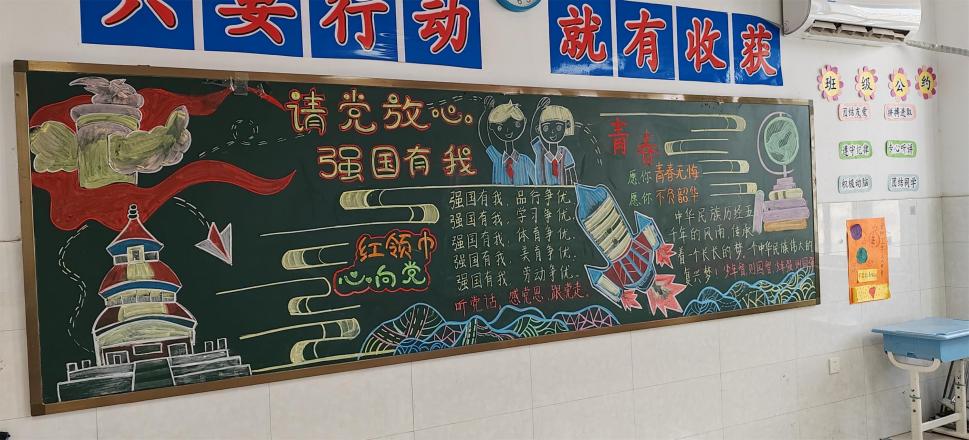 只要行动
就有收获
请党放心。
强国有我
红领巾
心向党
强国有我，品行争优。
强国有我，学习争优。
强国有我，体育争优。
强国有我，美育争优。
强国有我，劳动争优。
听党话，感党恩，跟党走。
青春
愿你青春无悔
愿你不负韶华
中华民族历经五
千年的风雨，传承
着一个长长的梦，个中华民族伟大的
复兴梦！少年智则国智，少年强则国强
班级公约
团结友爱
拼搏进取
遵守纪律
专心听讲
积极动脑
团结同学